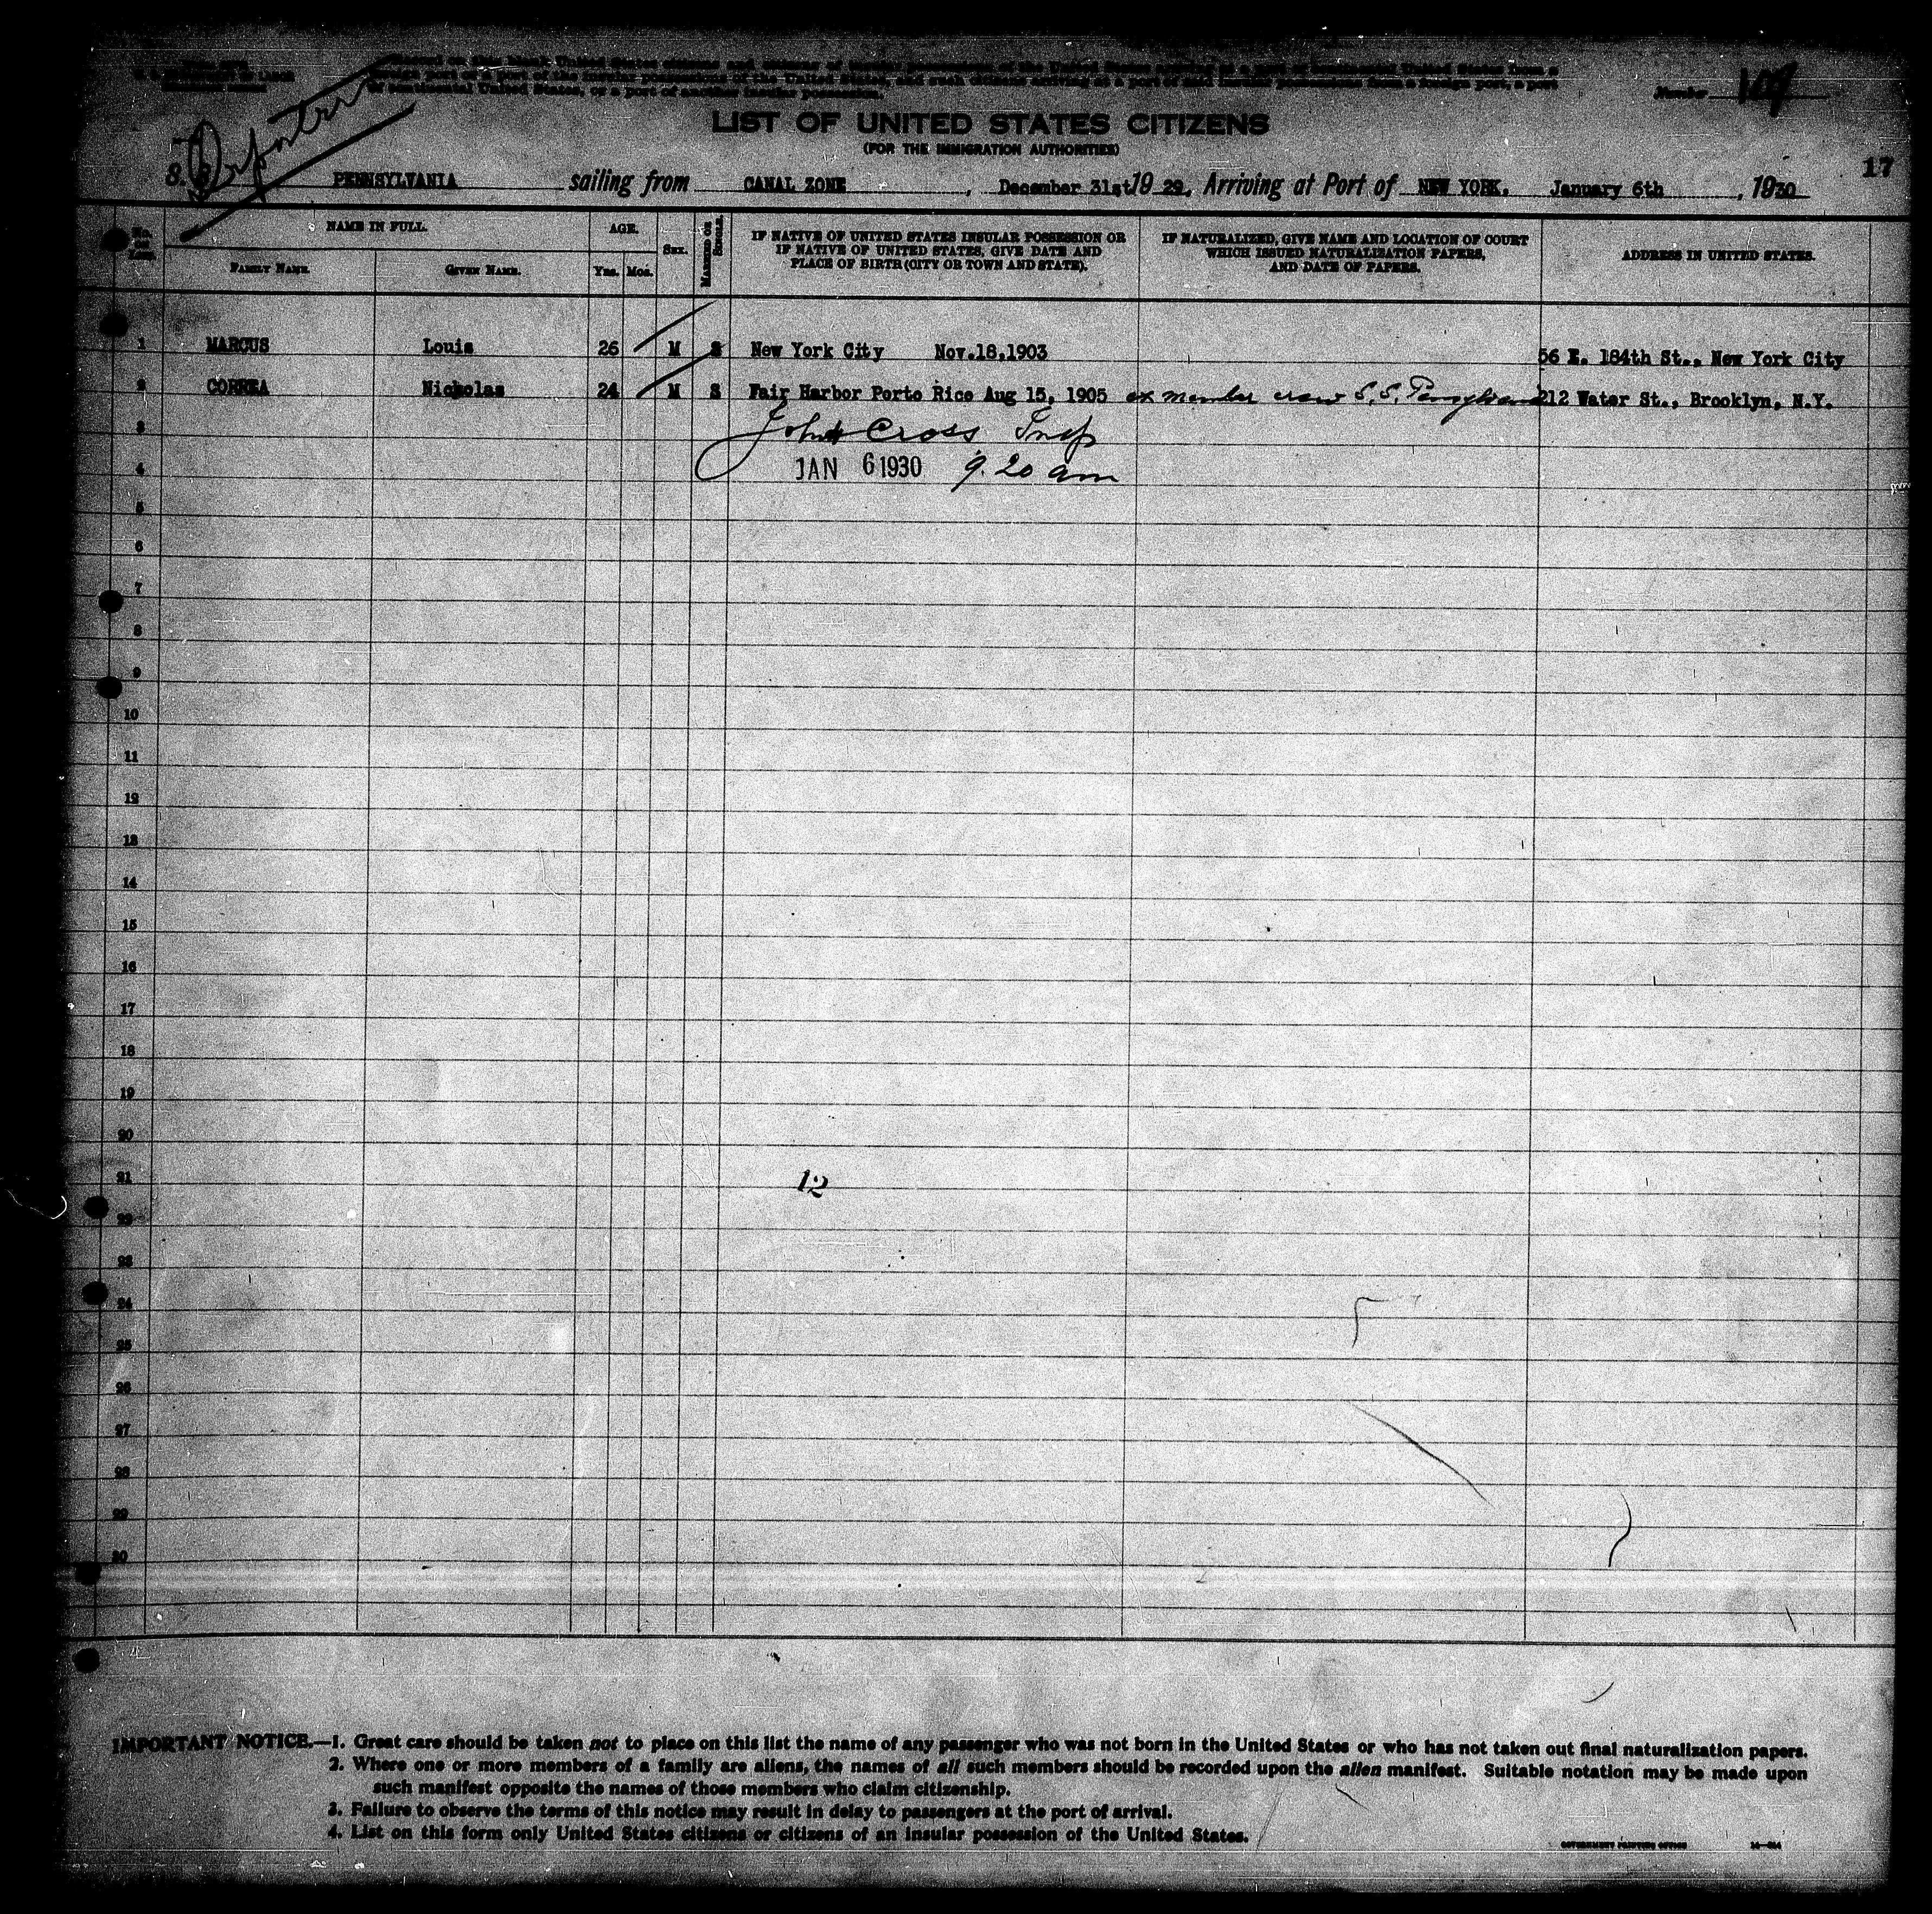 LIST OF UNITED STATES CITIZENS
(FOR THE IMMIGRATION AUTHORITIES)
17
S. PENNSYLVANIA sailing from CANAL ZONE, December 31st 19 29, Arriving at Port of NEW YORK, January 6th, 1930
No. on List.
NAME IN FULL.
AGE.
Sex.
Married or Single.
IF NATIVE OF UNITED STATES INSULAR POSSESSION OR
IF NATIVE OF UNITED STATES, GIVE DATE AND
PLACE OF BIRTH (CITY OR TOWN AND STATE).
IF NATURALIZED, GIVE NAME AND LOCATION OF COURT
WHICH ISSUED NATURALIZATION PAPERS,
AND DATE OF PAPERS.
ADDRESS IN UNITED STATES.
Family Name. Given Name. Yrs. Mos.
1 MARCUS Louis 26 M S New York City Nov.18,1903 56 E. 184th St., New York City
2 CORREA Nicholas 24 M S Fair Harbor Porto Rico Aug 15, 1905 ex member crew S.S. Pennsylvania 212 Water St., Brooklyn, N.Y.
3 John Cross Insp
4 JAN 6 1930 9.20 am
5
6
7
8
9
10
11
12
13
14
15
16
17
18
19
20
21 12
22
23
24
25
26
27
28
29
30
IMPORTANT NOTICE.—1. Great care should be taken not to place on this list the name of any passenger who was not born in the United States or who has not taken out final naturalization papers.
2. Where one or more members of a family are aliens, the names of all such members should be recorded upon the alien manifest. Suitable notation may be made upon
such manifest opposite the names of those members who claim citizenship.
3. Failure to observe the terms of this notice may result in delay to passengers at the port of arrival.
4. List on this form only United States citizens or citizens of an insular possession of the United States.
GOVERNMENT PRINTING OFFICE